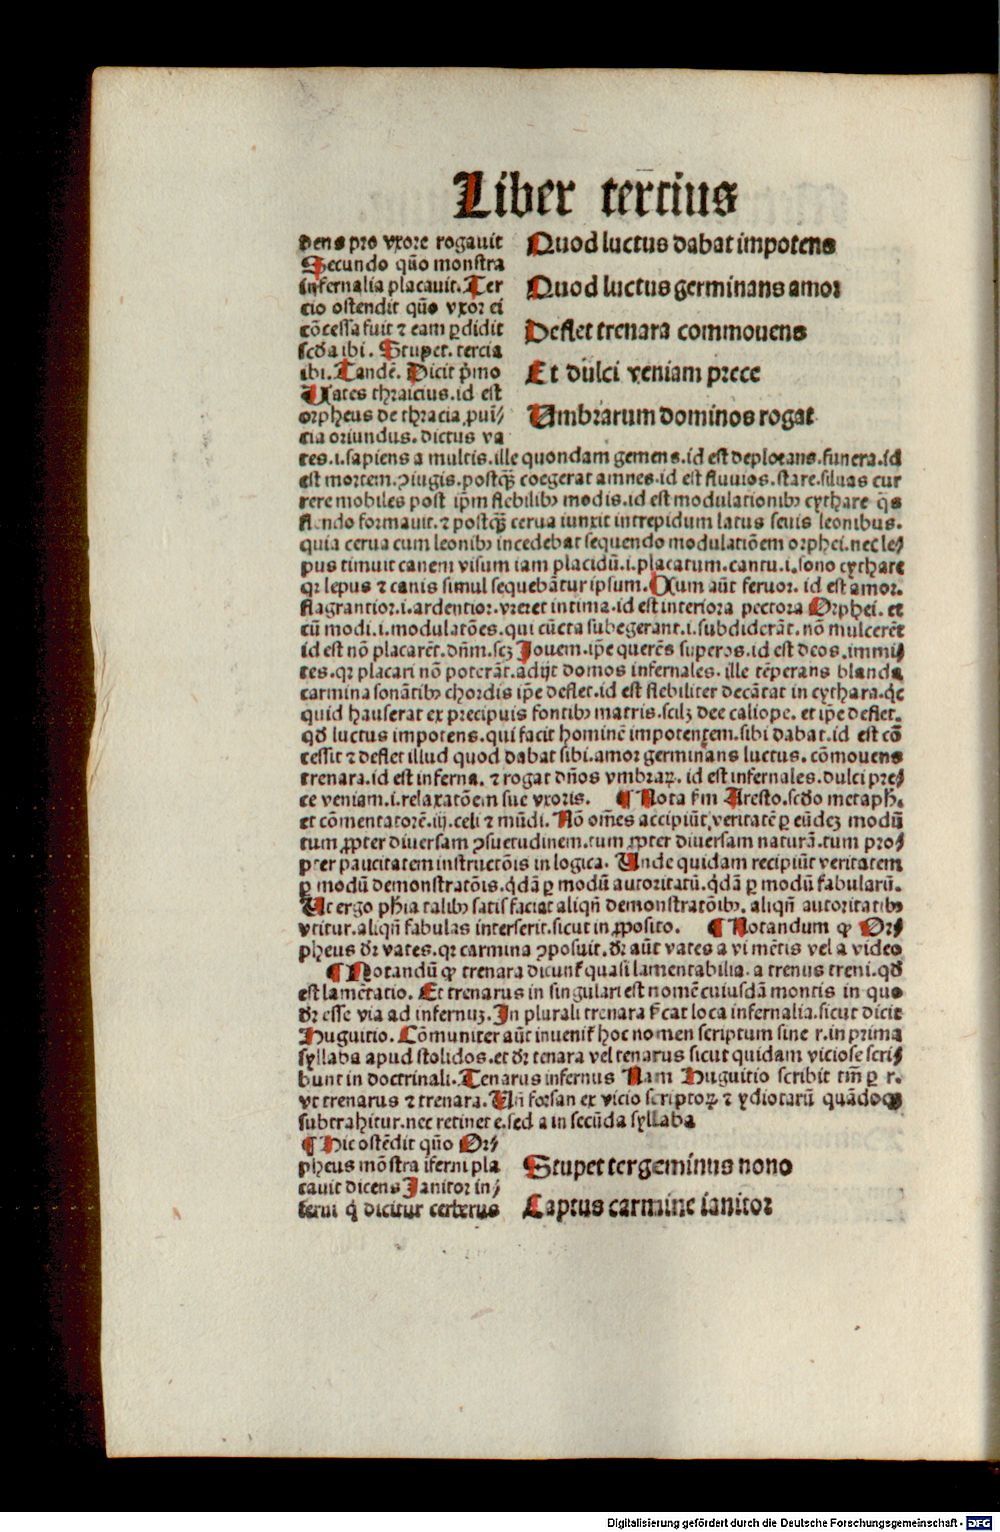 Liber tercius
dens pro vxore rogauit
Secundo quo monstra
infernalia placauit. Ter
cio ostendit quo vxor ei
cõcessa fuit ⁊ eam ꝑdidit
scđa ibi. Stupet. tercia
ibi. Tandẽ. Dicit pͥmo
Uates thraicius. id est
orpheus de thracia ꝓuĩ/
cia oriundus. dictus va
Quod luctus dabat impotens
Quod luctus germinans amor
Deflet trenara commouens
Et dulci veniam prece
Umbrarum dominos rogat
tes .i. sapiens a multis. ille quondam gemens. id est deplorans. funera. id
est mortem. ꝯiugis. postqͣꝫ coegerat amnes. id est fluuios. stare. siluas cur
rere mobiles post ip̃m flebilibꝫ modis. id est modulationibꝫ cythare q̃s
flendo formauit. ⁊ postqͣꝫ cerua iunxit intrepidum latus seuis leonibus.
quia cerua cum leonibꝫ incedebat sequendo modulatiõem orphei. nec le/
pus timuit canem visum iam placidũ .i. placatum. cantu .i. sono cythare
qꝛ lepus ⁊ canis simul sequebãtur ipsum. Cum aũt feruor. id est amor.
flagrantior .i. ardentior. vreret intima. id est interiora pectora Orphei. et
cũ modi .i. modulatões. qui cũcta subegerant .i. subdiderãt. nõ mulcerẽt
id est nõ placarẽt. dñm. scꝫ Jouem. ip̃e querẽs superos. id est deos. immi/
tes. qꝛ placari nõ poterãt. adijt domos infernales. ille tẽperans blanda
carmina sonãtibꝫ chordis ip̃e deflet. id est flebiliter decãtat in cythara. qͥc
quid hauserat ex precipuis fontibꝫ matris. scilꝫ dee caliope. et ip̃e deflet.
qđ luctus impotens. qui facit hominẽ impotentem. sibi dabat. id est cõ
cessit ⁊ deflet illud quod dabat sibi. amor germinans luctus. cõmouens
trenara. id est inferna. ⁊ rogat dños vmbraꝝ. id est infernales. dulci pre/
ce veniam .i. relaxatõem sue vxoris. ¶ Nota ẜm Aresto. scđo metaph.
et cõmentatorẽ. iij. celi ⁊ mũdi. Nõ om̃es accipiũt veritatẽ ꝑ eũdeꝫ modũ
tum ꝓpter diuersam ꝯsuetudinem. tum ꝓpter diuersam naturã. tum pro/
pter paucitatem instructõis in logica. Unde quidam recipiũt veritatem
ꝑ modũ demonstratõis. qͥdã ꝑ modũ autoritatũ. qͥdã ꝑ modũ fabularũ.
Ut ergo ph̃ia talibꝫ satisfaciat aliqñ demonstratõibꝫ. aliqñ autoritatibꝫ
vtitur. aliqñ fabulas interserit. sicut in ꝓposito. ¶ Notandum ꝙ Or/
pheus dꝛ vates. qꝛ carmina ꝯposuit. dꝛ aũt vates a vi mẽtis vel a video
¶ Notandũ ꝙ trenara dicunt̃ quasi lamentabilia. a trenus treni. qđ
est lamẽtatio. Et trenarus in singulari est nomẽ cuiusdã montis in quo
dꝛ esse via ad infernuꝫ. In plurali trenara ẜcat loca infernalia. sicut dicit
Huguitio. Cõmuniter aũt inuenit̃ hoc nomen scriptum sine r. in prima
syllaba apud stolidos. et dꝛ tenara vel tenarus sicut quidam viciose scri/
bunt in doctrinali. Tenarus infernus Nam Huguitio scribit tm̃ ꝑ r.
vt trenarus ⁊ trenara. Uñ forsan ex vicio scriptoꝝ ⁊ ydiotarũ quãdoqꝫ
subtrahitur. nec retinet e. sed a in secũda syllaba
¶ Hic ostẽdit quo Or/
pheus mõstra iferni pla
cauit dicens Janitor in/
ferni qͥ dicitur cerberus
Stupet tergeminus nono
Captus carmine ianitor
Digitalisierung gefördert durch die Deutsche Forschungsgemeinschaft - DFG